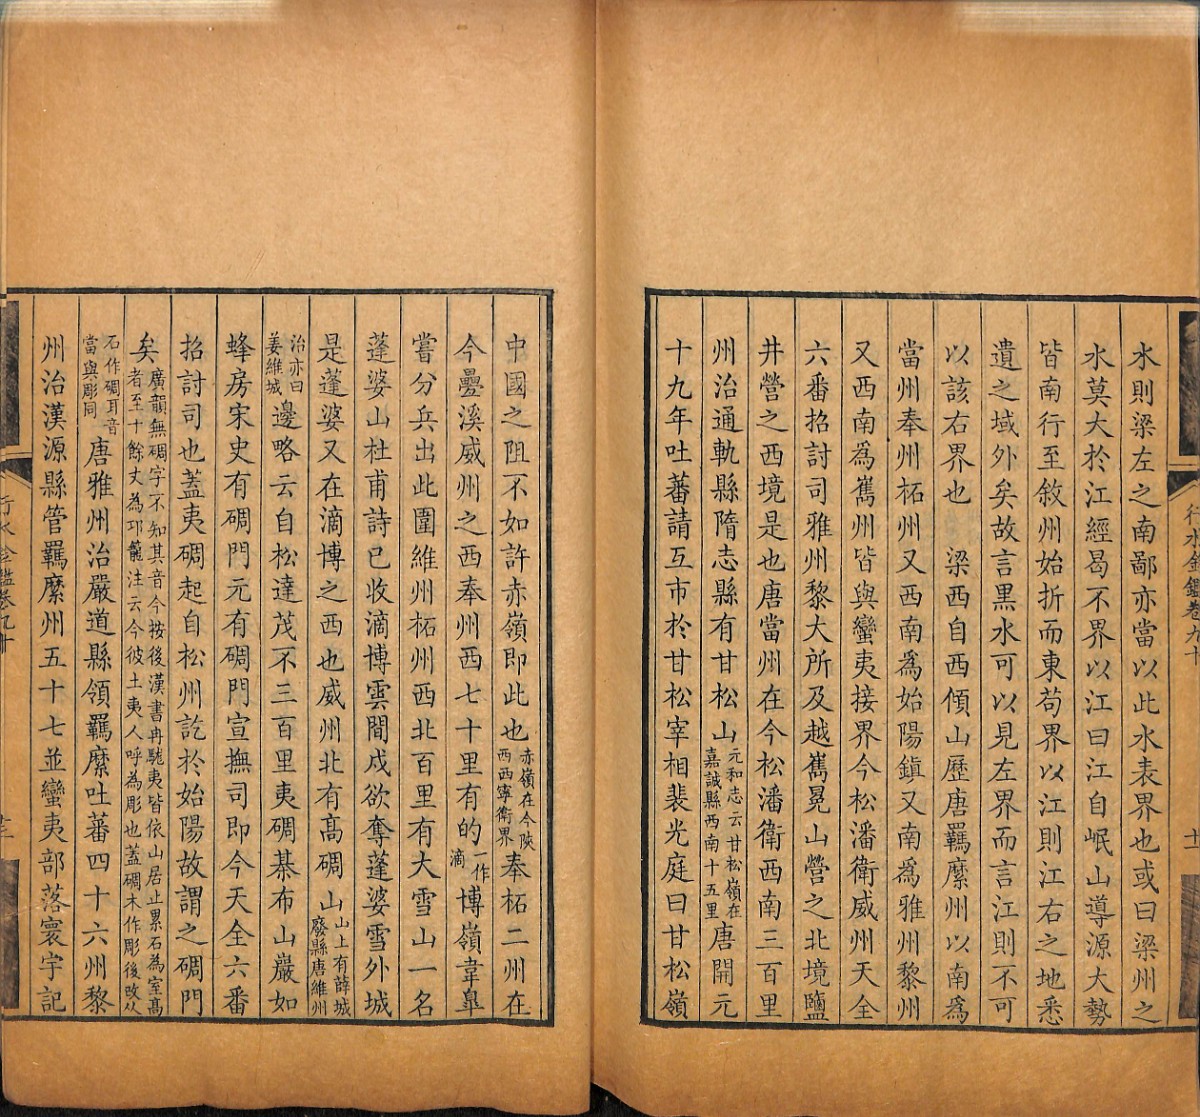 水則梁左之南鄙亦當以此水表界也或曰梁州之
水莫大於江經曷不界以江曰江自岷山導源大勢
皆南行至敘州始折而東苟界以江則江右之地悉
遺之域外矣故言黑水可以見左界而言江則不可
以該右界也　梁西自西傾山歷唐羈縻州以南為
當州奉州柘州又西南為始陽鎮又南為雅州黎州
又西南為巂州皆與蠻夷接界今松潘衛威州天全
六番招討司雅州黎大所及越巂冕山營之北境鹽
井營之西境是也唐當州在今松潘衛西南三百里
州治通軌縣隋志縣有甘松山元和志云甘松嶺在嘉誠縣西南十五里唐開元
十九年吐蕃請互市於甘松宰相裴光庭曰甘松嶺
行水金鑑卷九十
中國之阻不如許赤嶺即此也赤嶺在今陝西西寧衛界奉柘二州在
今疊溪威州之西奉州西七十里有的一作滴博嶺韋臯
嘗分兵出此圍維州柘州西北百里有大雪山一名
蓬婆山杜甫詩已收滴博雲間戍欲奪蓬婆雪外城
是蓬婆又在滴博之西也威州北有高碉山山上有薛城廢縣唐維州
治亦曰姜維城邊略云自松達茂不三百里夷碉棊布山巖如
蜂房宋史有碉門元有碉門宣撫司即今天全六番
招討司也蓋夷碉起自松州訖於始陽故謂之碉門
矣廣韻無碉字不知其音今按後漢書冉駹夷皆依山居止累石為室高者至十餘丈為邛籠注云今彼土夷人呼為彫也蓋碉木作彫後改从
石作碉耳音當與彫同唐雅州治嚴道縣領羈縻吐蕃四十六州黎
州治漢源縣管羈縻州五十七並蠻夷部落寰宇記
行水金鑑卷九十